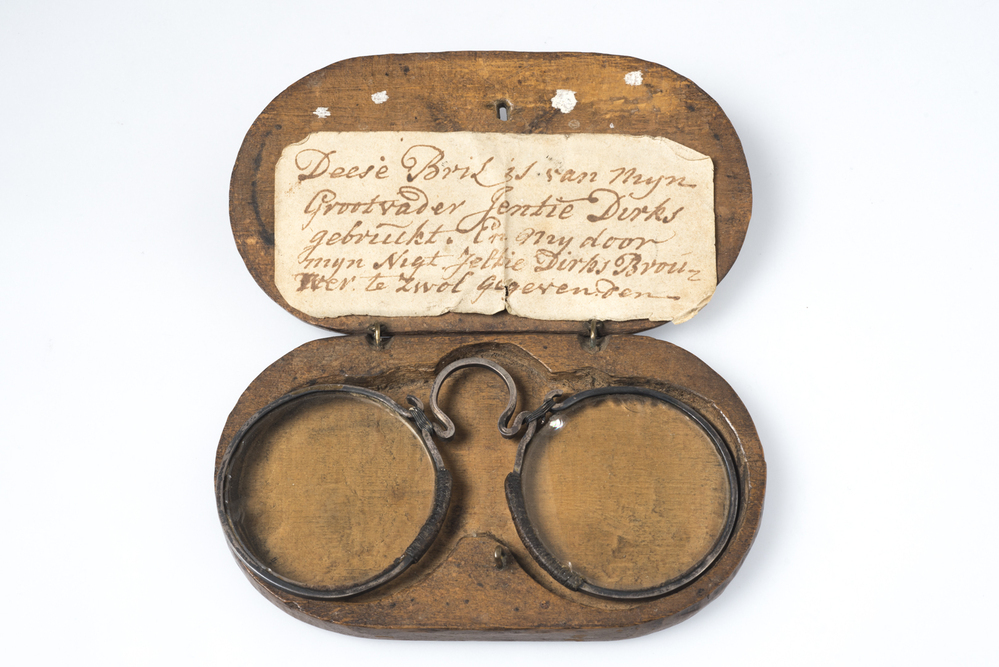 Deese Bril is van Myn
Grootvader Jentie Dirks
gebruickt. En My door
myn Nigt Jeltie Dirks Brou=
wer te Zwol gegeven. den